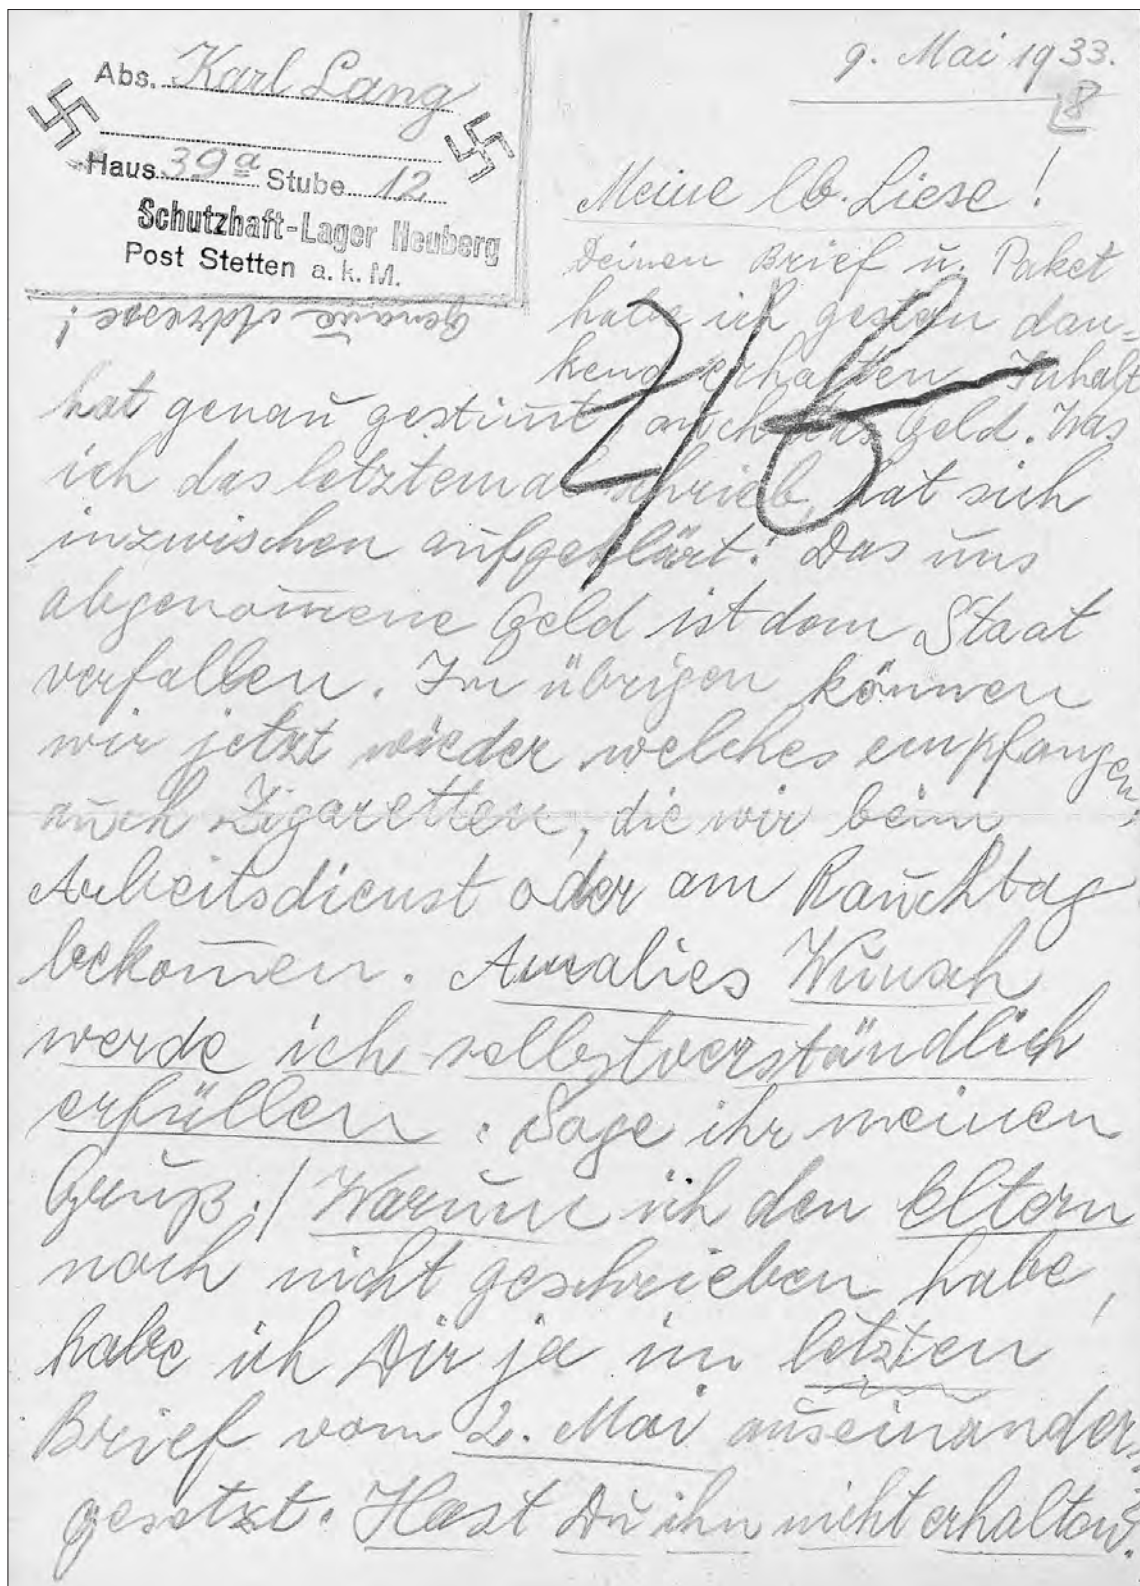 Abs. Karl Lang
Haus 39a Stube 12
Schutzhaft-Lager Heuberg
Post Stetten a. k. M.
Genaue Adresse!
9. Mai 1933.
8
Meine lb. Liese!
Deinen Brief u. Paket
habe ich gestern dan-
kend erhalten. Inhalt
hat genau gestim̅t, auch das Geld. Was
ich das letztemal schrieb, hat sich
inzwischen aufgeklärt: Das uns
abgenom̅ene Geld ist dem Staat
verfallen. Im übrigen können
wir jetzt wieder welches empfangen,
auch Zigaretten, die wir beim
Arbeitsdienst oder am Rauchtag
bekom̅en. Amalies Wunsch
werde ich selbstverständlich
erfüllen. Sage ihr meinen
Gruß./ Warum ich den Eltern
noch nicht geschrieben habe,
habe ich Dir ja im letzten
Brief vom 2. Mai auseinander-
gesetzt. Hast Du ihn nicht erhalten?